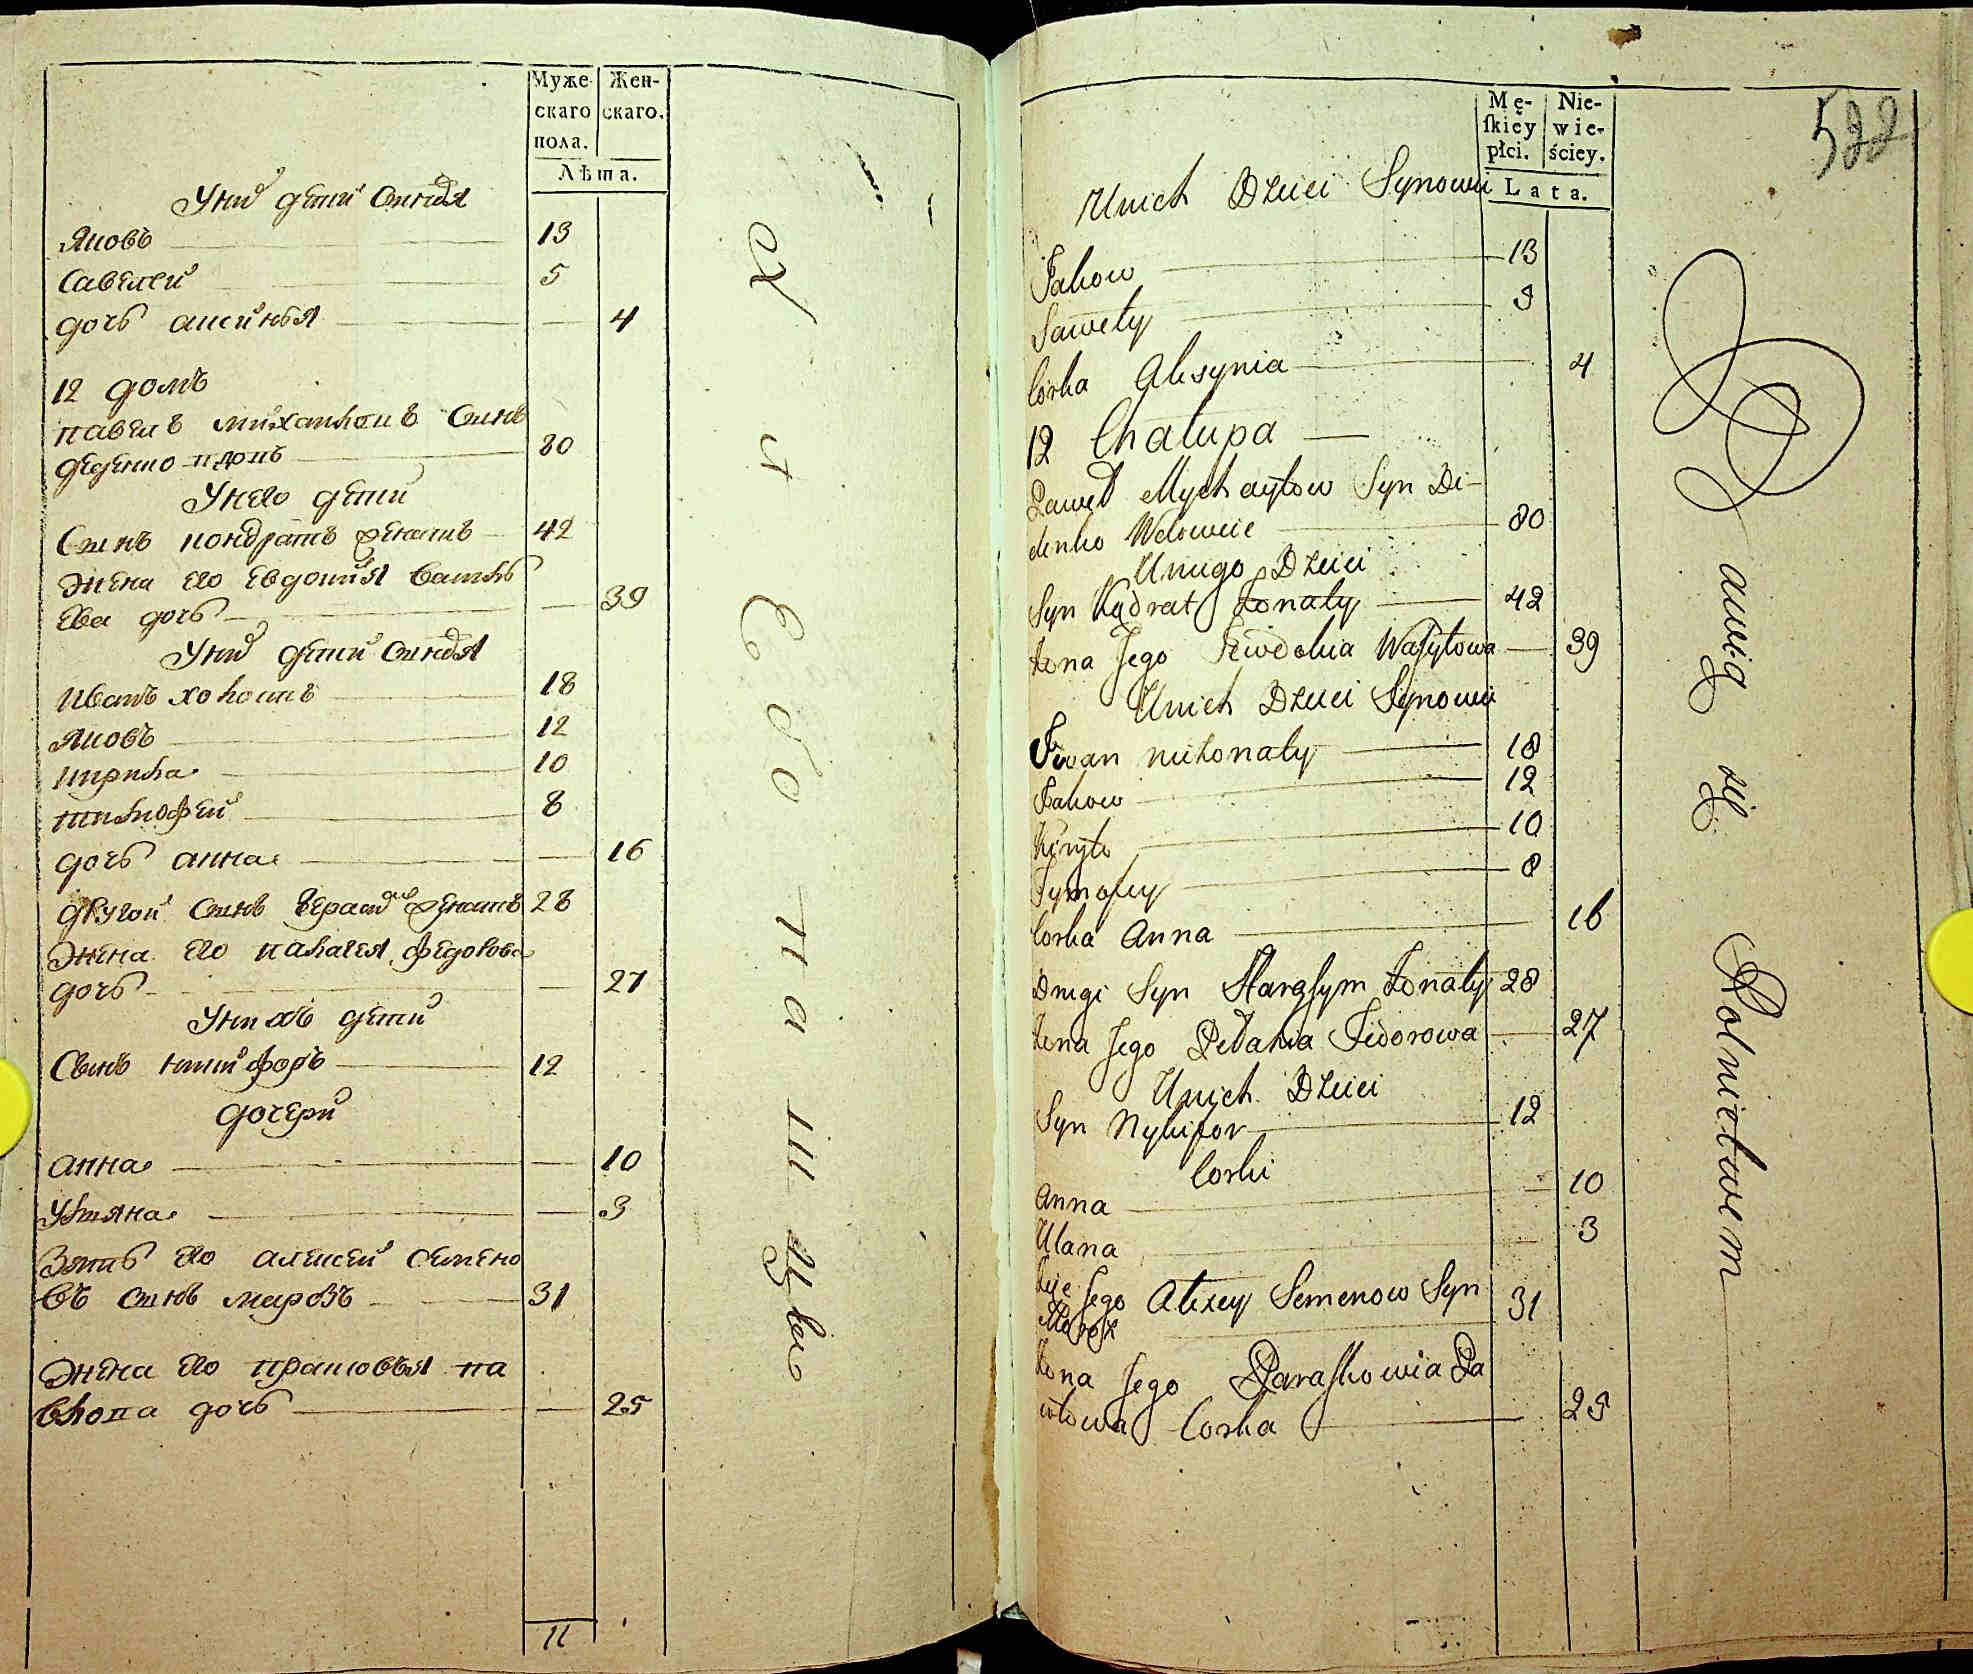 Муже-
скаго
пола.
Жен-
скаго.
Лѣта.
Униⷯ дети Синовя
Яковъ 13
Савелей 5
дочь аксинья 4
12 домъ
павелъ михайловъ Синъ
деденко вдовъ 80
Унего дети
Синъ кондратъ женатъ 42
Жена его Евдокия василь
Ева дочь 39
Униⷯ дети Синовя
Иванъ холостъ 18
Яковъ 12
кирила 10
тимофей 8
дочь анна 16
другой Синъ герасимъ женатъ 28
Жена его палагея федорова
дочь 27
Унихъ дети
Синъ никифоръ 12
дочери
анна 10
Ульяна 3
Зять его алексей семено
въ Синъ марозъ 31
Жена его прасковья па
влова дочь 25
11
Хлебопашцы
522
Mę-
skiey
płci.
Nie-
wie-
ściey.
Lata.
Unich Dzieci Synowie
Jakow 13
Saweły 5
Corka Aksynia 4
12 Chałupa
Paweł Mychayłow Syn Di-
denko Wdowiec 80
Uniego Dzieci
Syn Kądrat Żonaty 42
Żona Jego Jewdokia Wasyłowa 39
Unich Dzieci Synowie
Iwan nieżonaty 18
Jakow 12
Kiryło 10
Tymofiey 8
Corka Anna 16
Drugi Syn Harasym Żonaty 28
Żona Jego Pełahia Fedorowa 27
Unich Dzieci
Syn Nykifor 12
Corki
Anna 10
Ulana 3
Jego Alexey Semenow Syn
Maroz 31
Żona Jego Paraskowia Pa
włowa Corka 25
Bawią się Rolnictwem